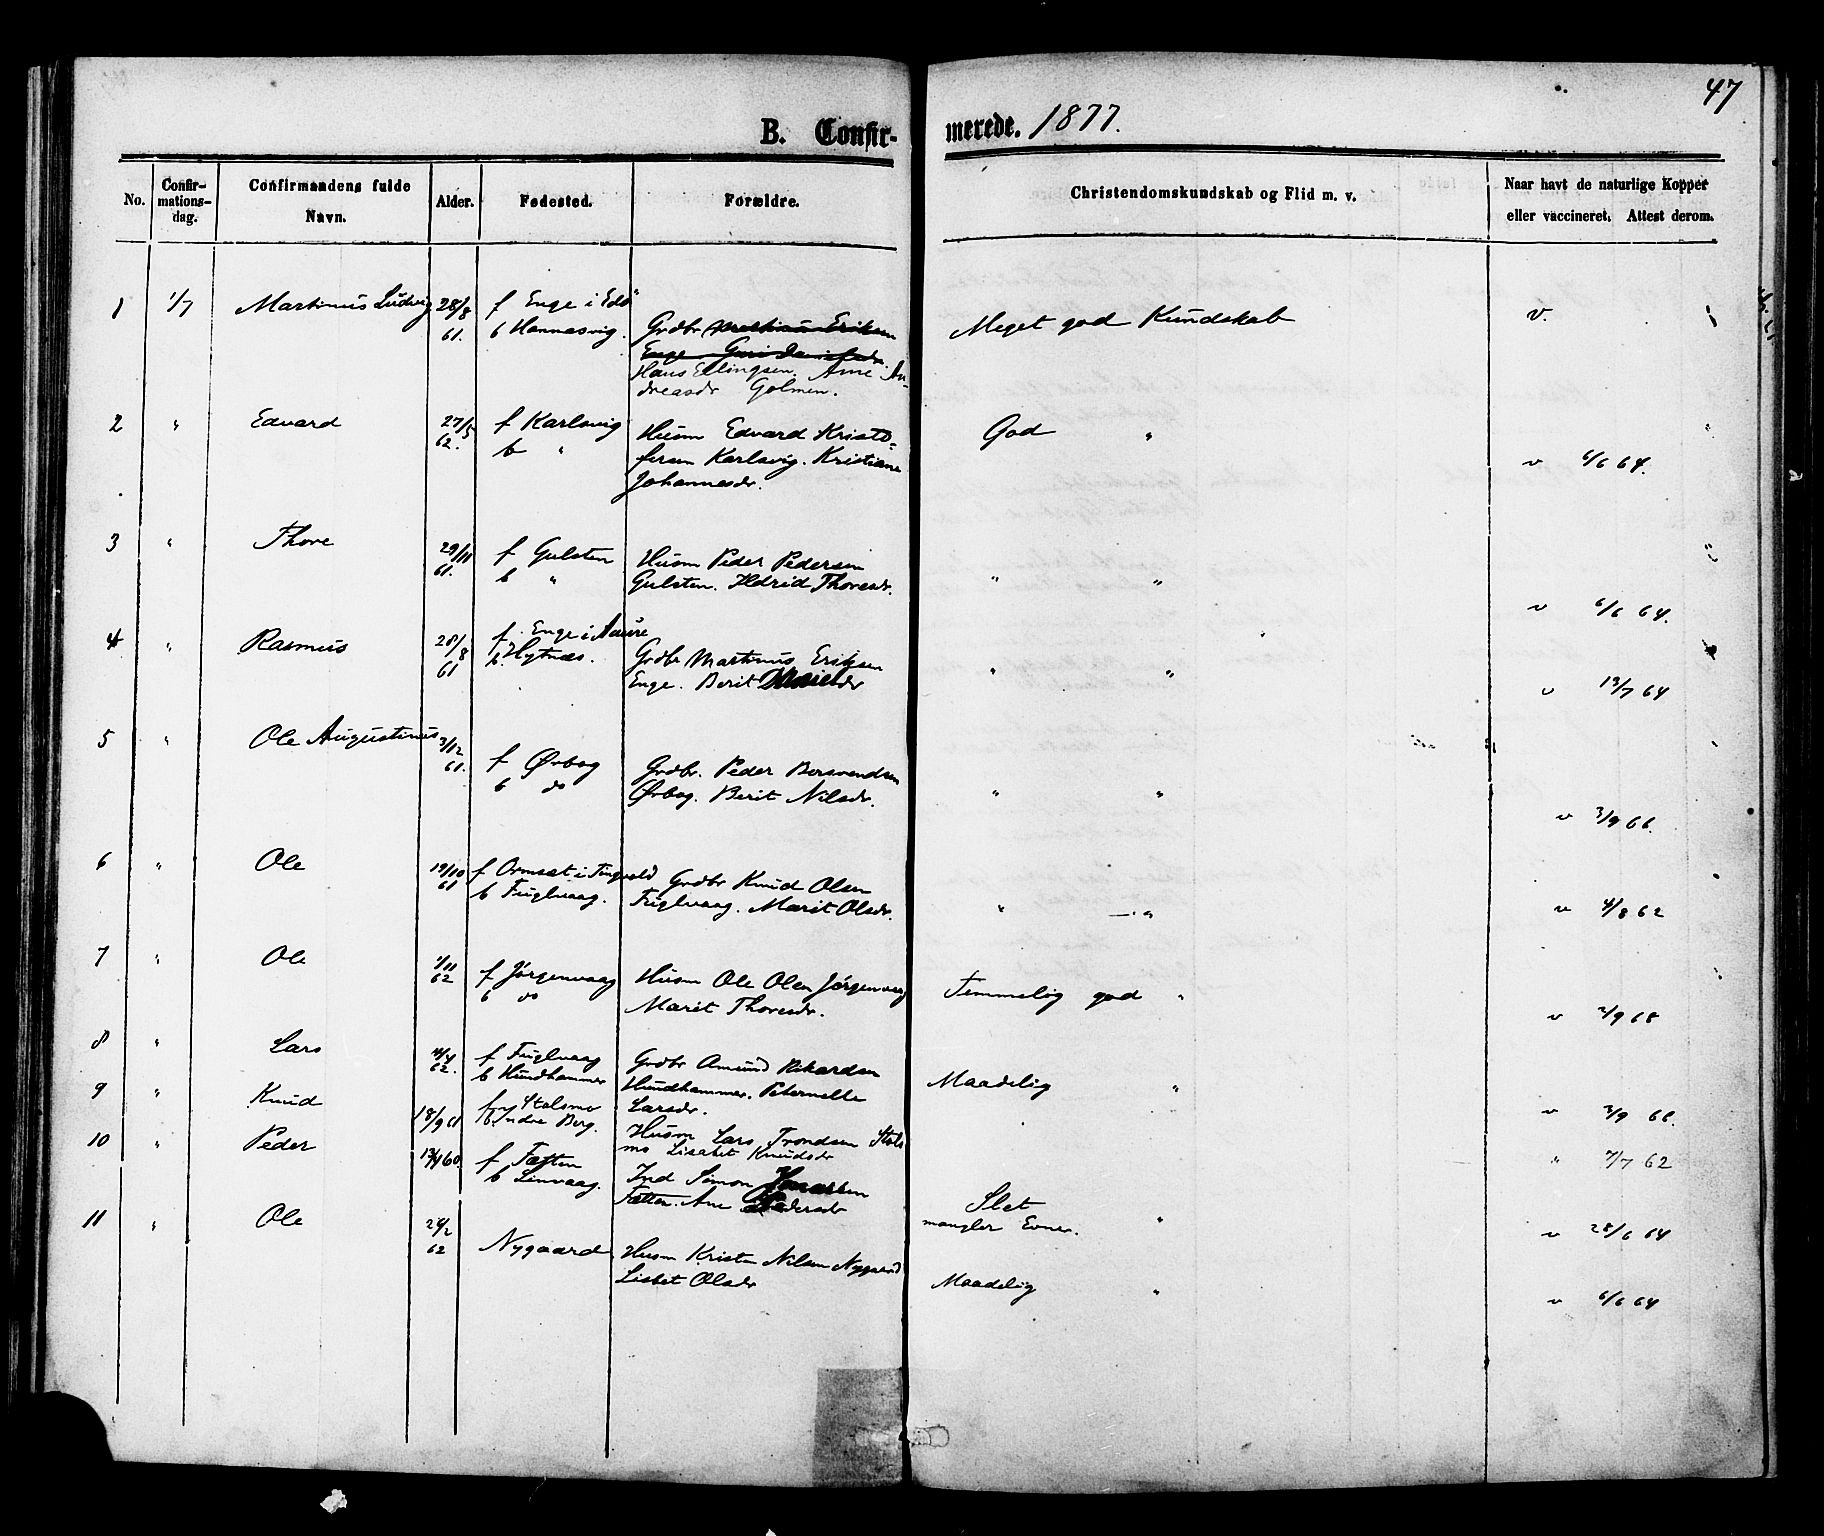 47
B. Confir- merede. 1877.
No. Confir-mations-dag. Confirmandens fulde Navn. Alder. Fødested. Forældre. Christendomskundskab og Flid m. v. Naar havt de naturlige Kopper eller vaccineret. Attest derom.
1 1/7 Martinus Ludvig 28/8 f Enge i Edø
61. b Hannasvig. Grdbr Martinus Eriksen Meget god Kundskab v.
Enge Guri
Hans Ellingsen. Ane An-
dreasdr Golmen.
2 " Edvard 27/5 f Karlsvig
62. b " Husm Edvard Kristo- God "
fersen Karlsvig. Kristiane v 6/6 64.
Johannesdr.
3 " Thore 29/11 f Gulsten Husm Peder Pedersen
61. b " Gulsten. Ildrid Thoresdr. " "
v 6/6 64.
4 " Rasmus 28/8 f. Enge i Aure
61 b. Hytnæs. Grdbr Martinus Eriksen " "
Enge. Berit v 13/7 64
5 " Ole Augustinus 3/12
61. f Ørbog Grdbr. Peder Borsvendsen
b do Ørbog. Berit Nilsdr. " "
v 3/9 66.
6 " Ole 19/10 f Ormsæt i Tingvold Grdbr Knud Olsen
61 b Fuglvaag. Fuglvaag. Marit Olsdr. " — " v 4/8 62
7 " Ole 1/11
62 f Jørgenvaag Husm Ole Olsen Jørgenvaag Temmelig god "
b do Marit Thoresdr. v 2/9 68
8 " Lars 11/4 f Fuglvaag Grdbr Amund Rikardsen
62. b Hundhammer Hundhammer. Peternelle Maadelig "
Larsdr. v 3/9 66.
9 " Knud 18/9 61 f Stolsmo
b Indre Berg. Husm Lars Trondsen Stols
mo Lisabet Knudsdr " 7/7 62
10 " Peder 13/4 60. f Fætten
b Linvaag. Ind Simon Jonassen Slet
Fætten. Ane Pedersdr mangler Evner. " v 28/6 64
11 " Ole 24/2
62 Nygaard Husm Kristen Nilsen Nygaard
Lisbet Olsdr Maadelig " v 6/6 64